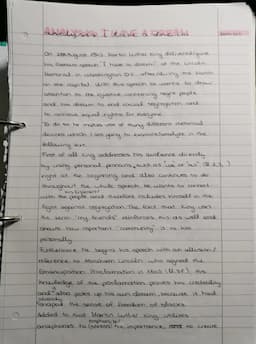 ANALYSIS I HAVE A DREAM
On 28th August 1963 Martin Luther King delivered/gave
his famous speech "I have a dream" at the Lincoln
Memorial in Washington D.C. after the March
on the capital. With this speech he wants to draw
attention to the injustice concerning negro people
and his dream to end social segregation and
to achieve equal rights for everyone.
To do so he makes use of many different rhetorical
devices which I am going to examine/analyze in the
following text.
First of all King addresses his audience directly
by using personal pronouns, such as "we" or "us"
right at the beginning and also continues to do
throughout the whole speech. He wants to connect
with the people and therefore includes himself in the
fight against segregation. The fact that King uses
the term "my friends" reinforces this as well and
shows how important "community" is to him
personally.
Furthermore he begins his speech with an allusion/
reference to Abraham Lincoln who signed the
Emancipation Proclamation in 1863. His
knowledge of the proclamation proves his credibility
and also picks up his own dream, because it had
already
the of freedom of slaves
Added to that Martin Luther King utilizes
emphasize
anaphoras to the importance, to create